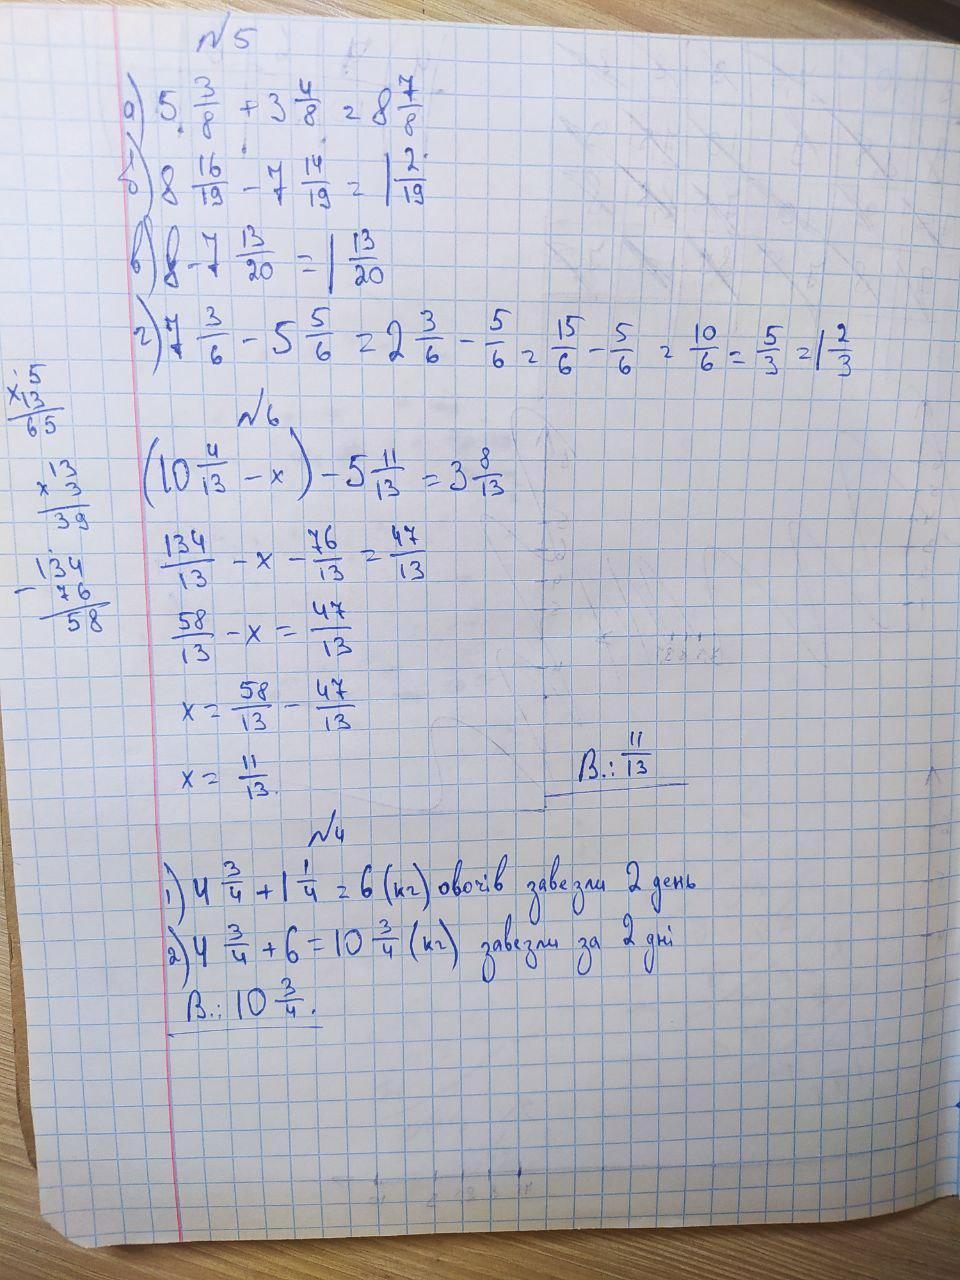 №5
а) 5 3/8 + 3 4/8 = 8 7/8
б) 8 16/19 - 7 14/19 = 1 2/19
в) 8 - 7 13/20 = 1 13/20
г) 7 3/6 - 5 5/6 = 2 3/6 - 5/6 = 15/6 - 5/6 = 10/6 = 5/3 = 1 2/3
×5
13
65
№6
(10 4/13 - x) - 5 11/13 = 3 8/13
×13
3
39
134/13 - x - 76/13 = 47/13
-134
76
58
58/13 - x = 47/13
x = 58/13 - 47/13
x = 11/13
В.: 11/13
№4
1) 4 3/4 + 1 1/4 = 6 (кг) овочів завезли 2 день
2) 4 3/4 + 6 = 10 3/4 (кг) завезли за 2 дні
В.: 10 3/4.